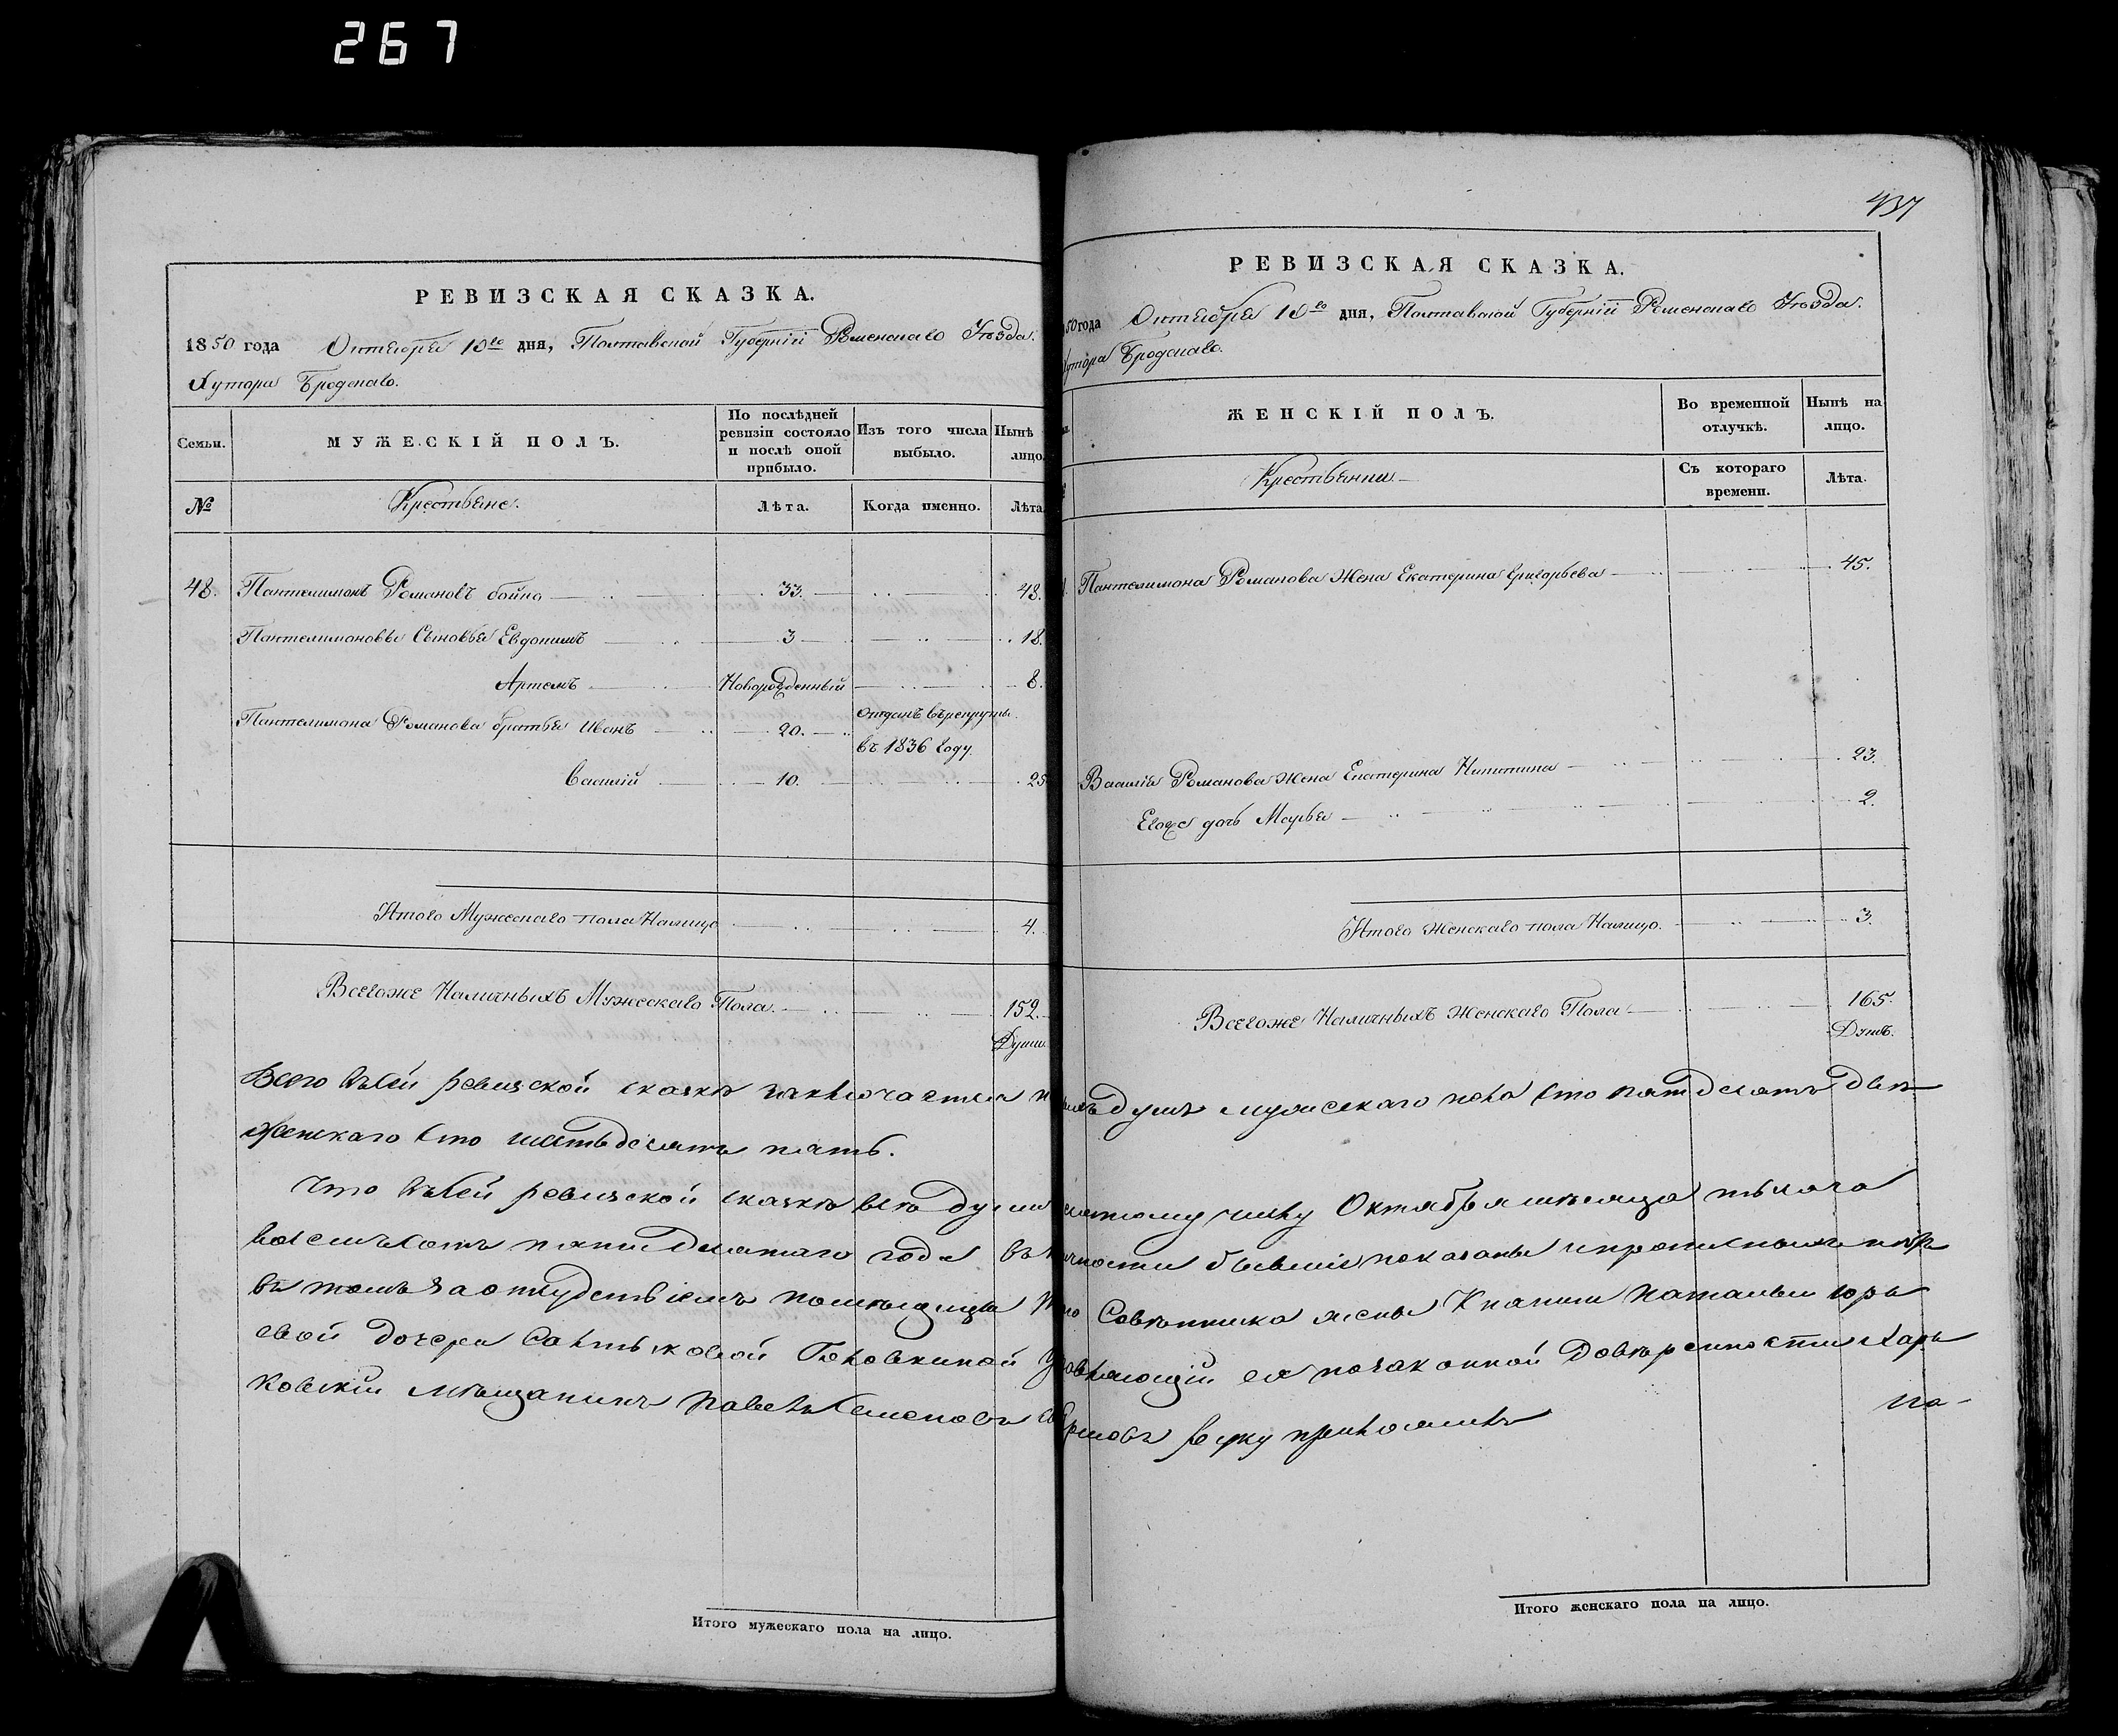 267
437
РЕВИЗСКАЯ СКАЗКА.
1850 года Октября 10го дня, Полтавской Губерніи Роменскаго Уѣзда.
Хутора Бродскаго.
Семьи.
МУЖЕСКІЙ ПОЛЪ.
По послѣдней ревизіи состояло и послѣ оной прибыло.
Изъ того числа выбыло.
Нынѣ лицо.
№
Крестьяне.
Лѣта.
Когда именно.
Лѣта
48. Пантелимонъ Романовъ бойко 33. 48.
Пантелимоновы Сыновья Евдокимъ 3 18.
Артемъ Новорожденный 8.
Пантелимона Романова братья Иванъ 20. отданъ въ рекруты
въ 1836 году.
Василій 10. 25
Итого Мужескаго пола Налицо 4.
Всегоже Наличныхъ Мужескаго Пола. 152.
Душъ
Итого мужескаго пола на лицо.
РЕВИЗСКАЯ СКАЗКА.
50 года Октября 10го дня, Полтавской Губерніи Роменскаго Уѣзда.
утора Бродскаго.
ЖЕНСКІЙ ПОЛЪ.
Во временной отлучкѣ.
Нынѣ на лицо.
Крестьянки
Съ котораго времени.
Лѣта.
Пантелимона Романова Жена Екатерина Григорьева 45.
Василія Романова Жена Екатерина Никитина 23.
Егоже дочь Марья 2.
Итого Женскаго пола Налицо. 3.
Всегоже Наличныхъ Женскаго Пола 165.
Душъ.
Всего въ сей ревизской сказке заключается душъ мужескаго пола сто пятдесятъ две
женскаго сто шестьдесятъ пять.
Что въ сей ревизской сказке все души по числу Октября месяца тысяча
восемьсотъ пятидесятаго года бывшіе показаны
въ томъ за отсудствіемъ помещицы Советника жены Княгини Натальи Юрь
евой дочери Салтыковой Головкиной ея по законной доверенности Харь
ковскій мещанинъ Павелъ Семеновъ руку приложилъ
по-
Итого женскаго пола на лицо.